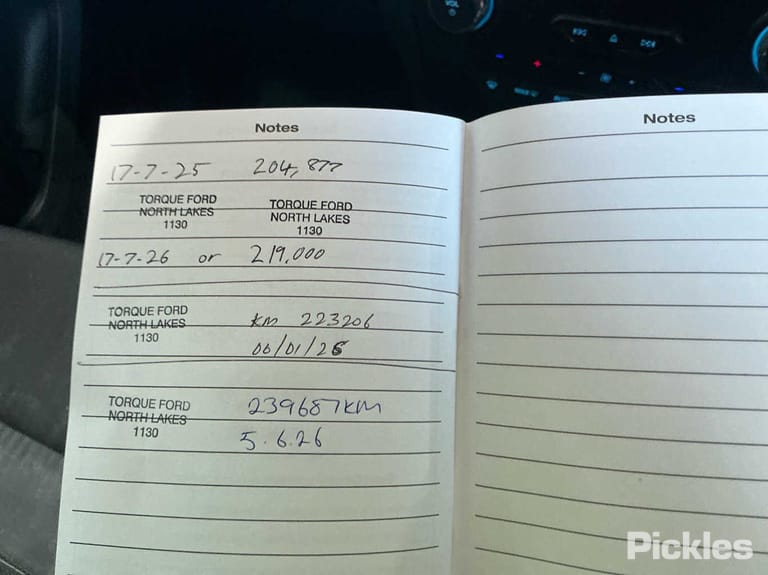 VOL
Notes
17-7-25 204,877
TORQUE FORD
NORTH LAKES
1130
TORQUE FORD
NORTH LAKES
1130
17-7-26 or 219,000
TORQUE FORD
NORTH LAKES
1130
KM 223206
06/01/26
TORQUE FORD
NORTH LAKES
1130
239687KM
5.6.26
Notes
Pickles